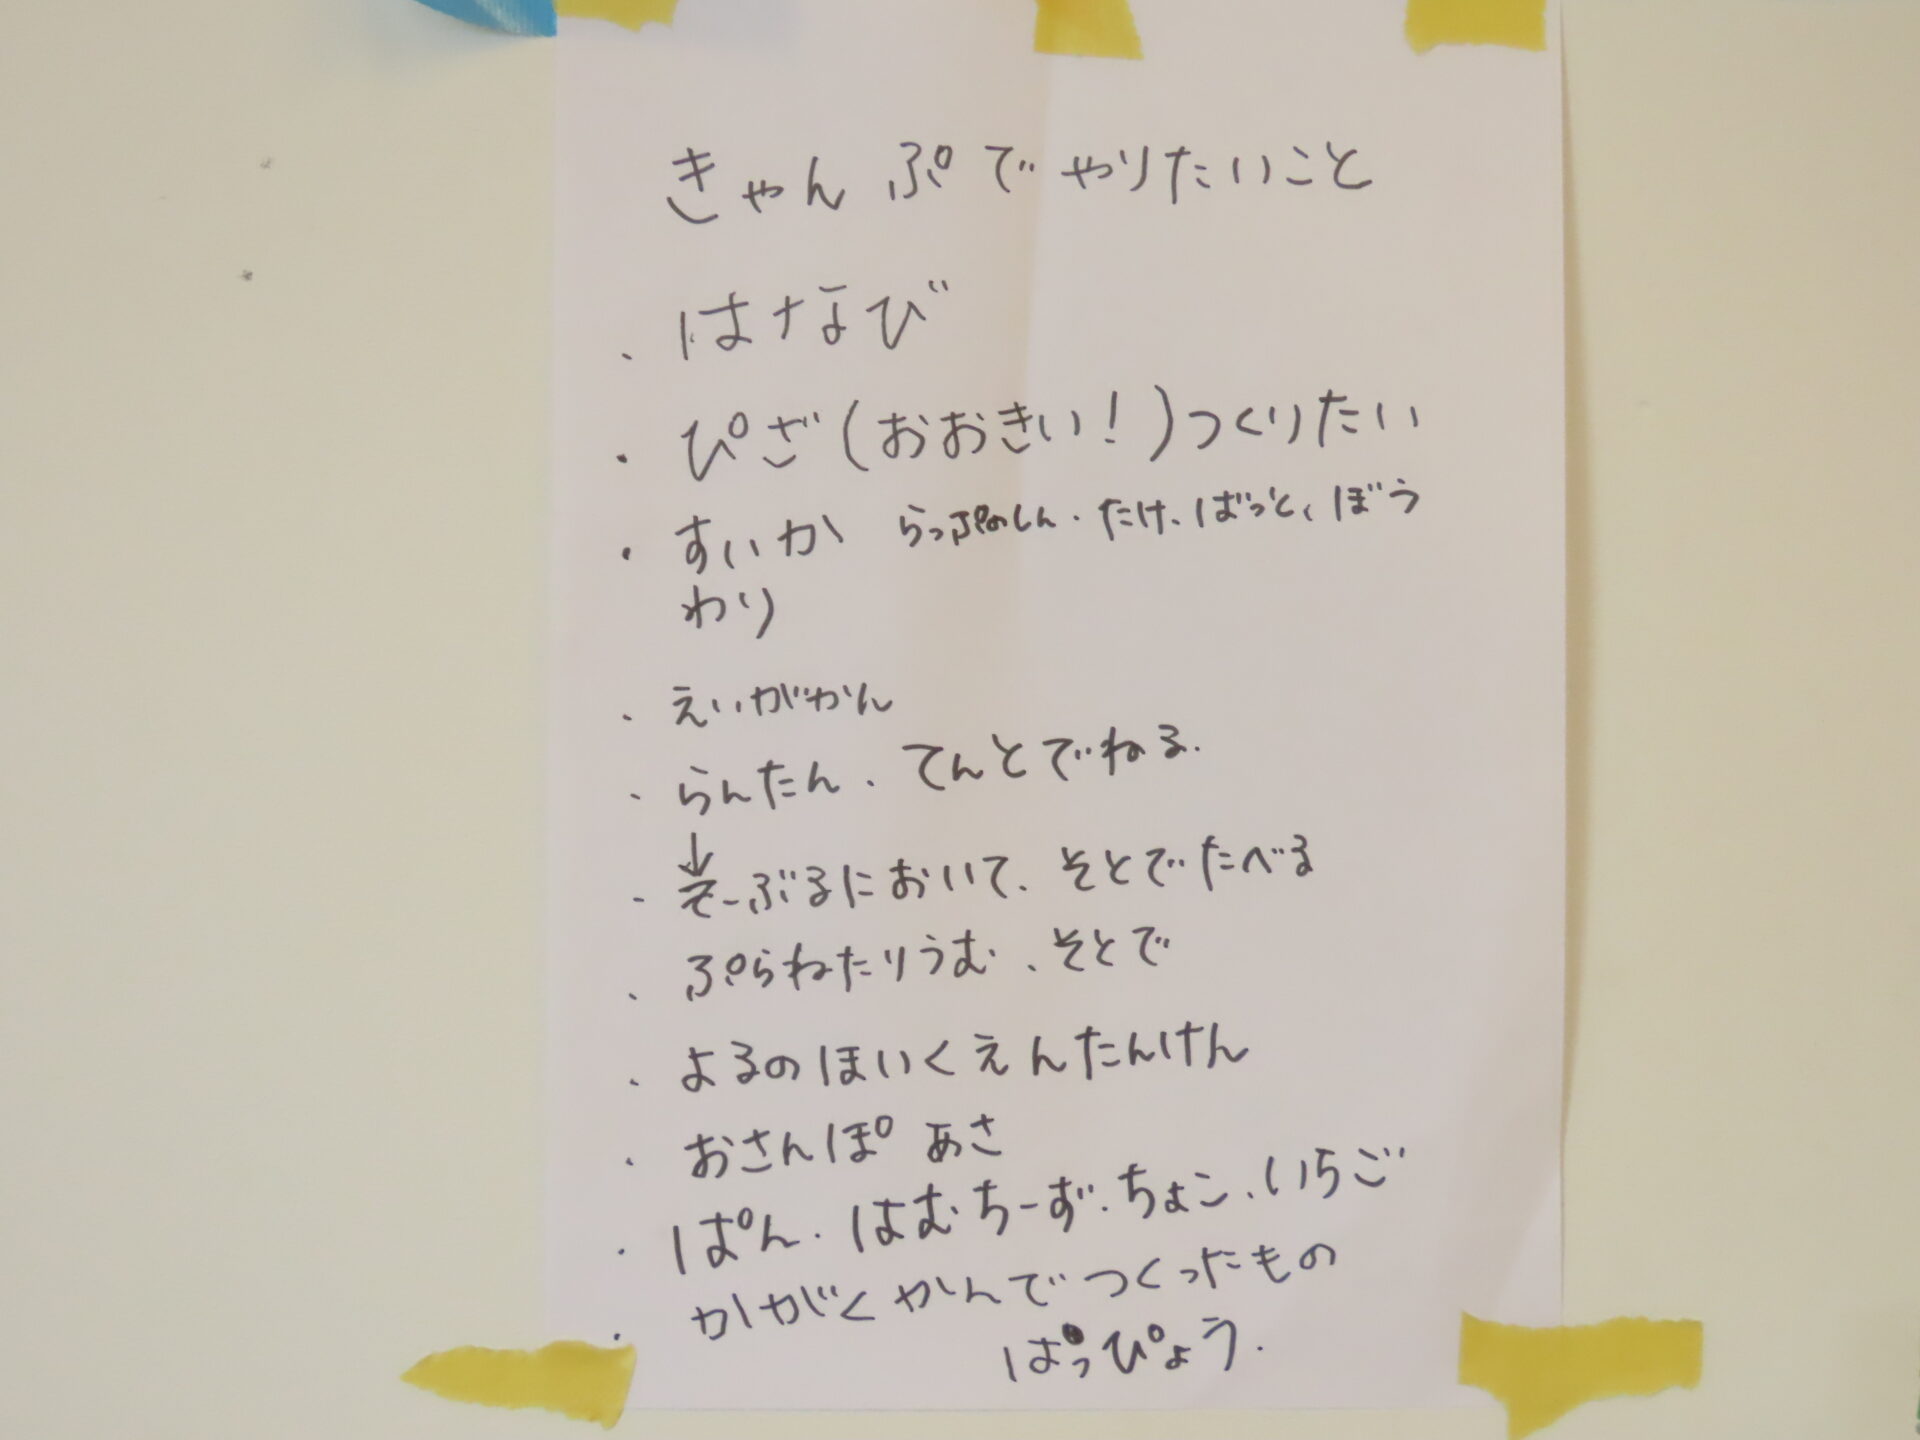 きゃんぷでやりたいこと
・はなび
・ぴざ(おおきい!)つくりたい
・すいか らっぷのしん・たけ、ばっと、ぼう
わり
・えいがかん
・らんたん、てんとでねる.
・てーぶるにおいて、そとでたべる
・ぷらねたりうむ、そとで
・よるのほいくえんたんけん
・おさんぽ あさ
・ぱん・はむ・ちーず・ちょこ、いちご
・かがくかんでつくったもの
はっぴょう.